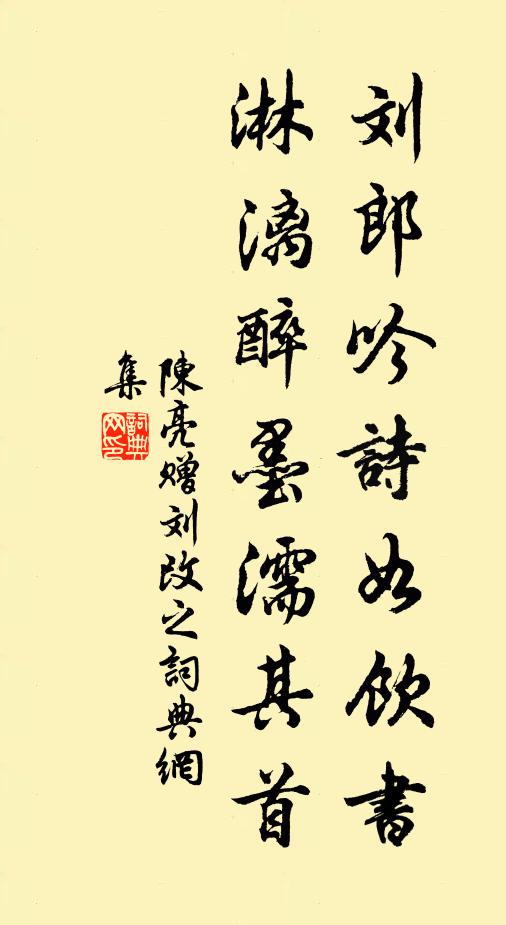 刘郎吟詩如飲書
淋漓醉墨濡其首
陳亮赠刘改之詞典網
集
詞典
网印